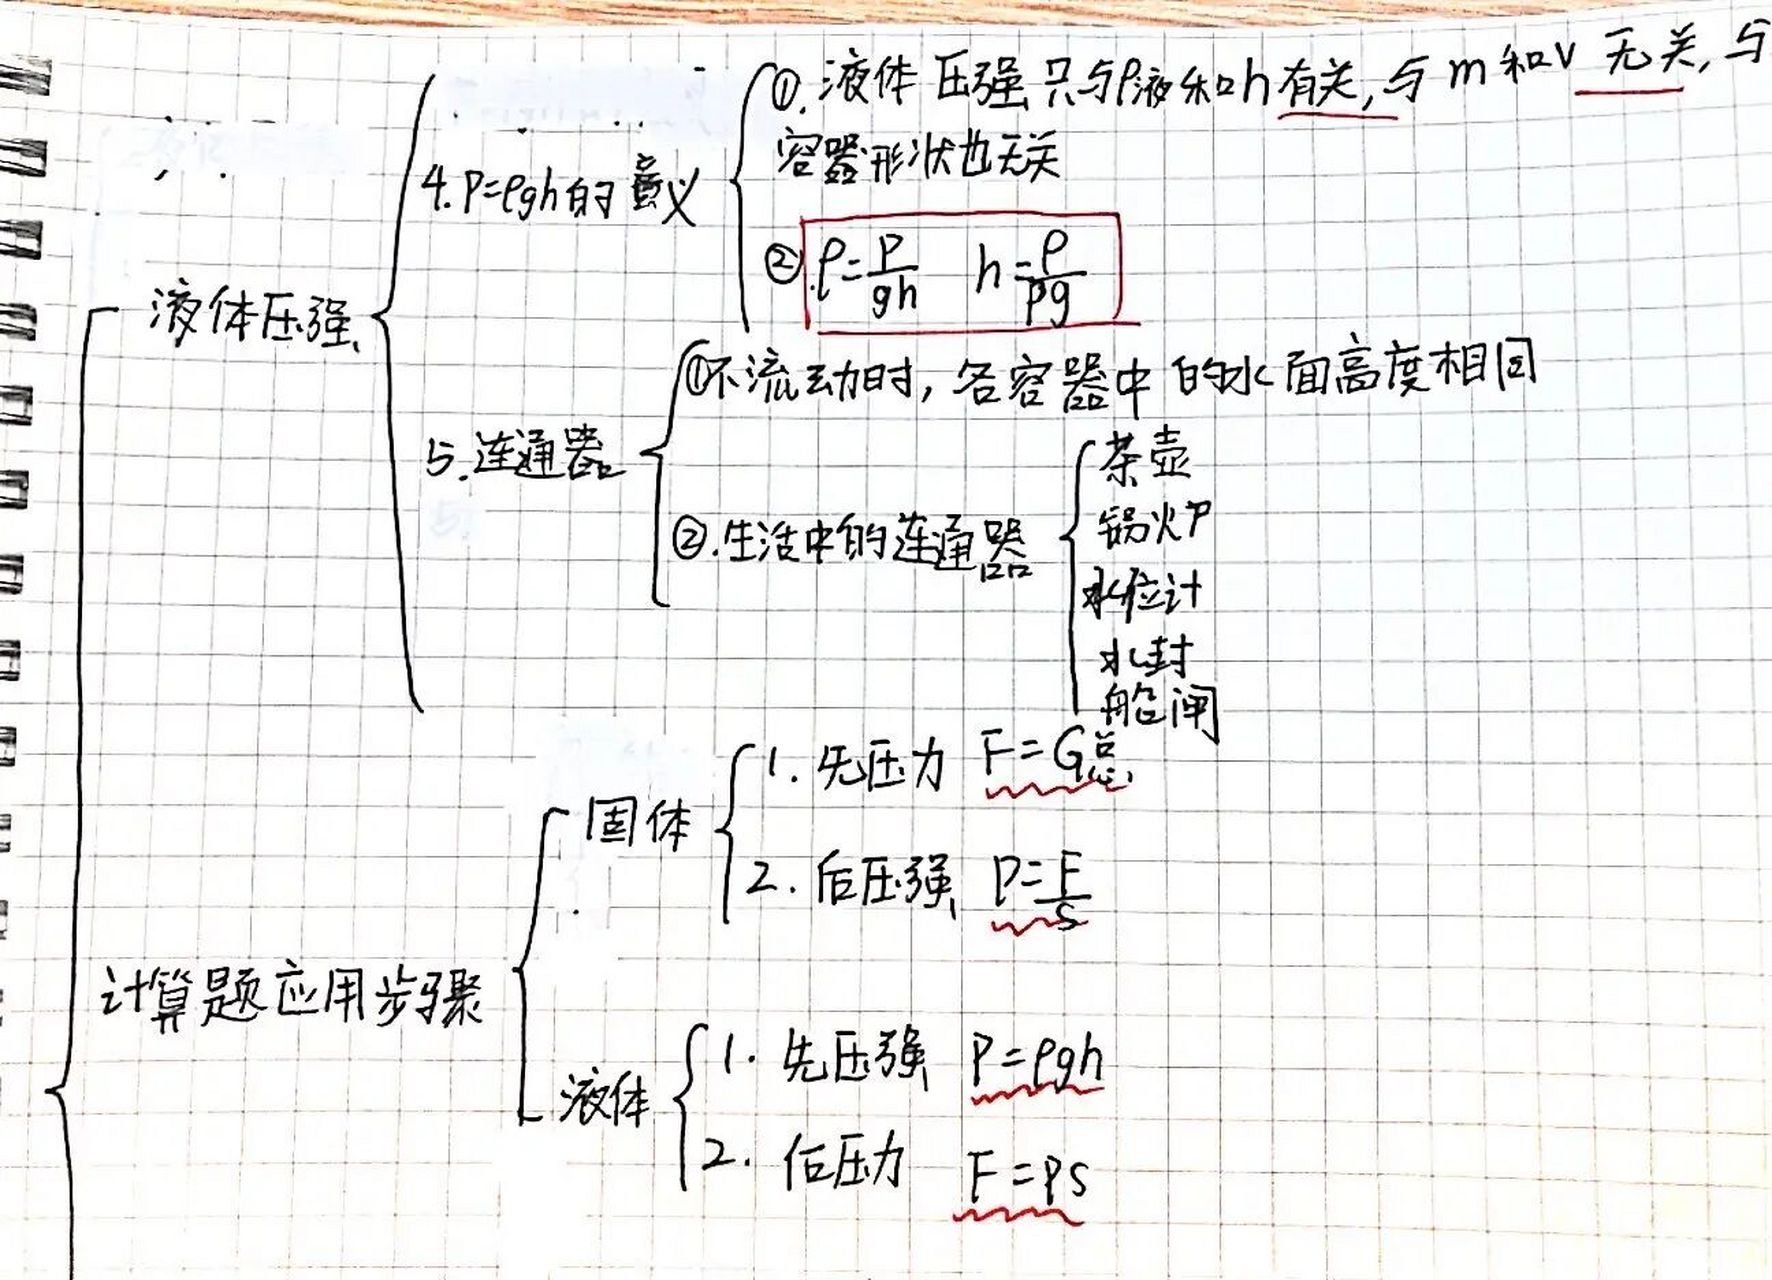 ①.液体压强只与ρ液和h有关,与m和V无关,与
容器形状也无关
4.P=ρgh的意义
②.ρ=P/gh h=ρ/pg
液体压强
①不流动时,各容器中的水面高度相同
5.连通器
茶壶
②.生活中的连通器
锅炉
水位计
水封
船闸
1.先压力 F=G总
固体
2.后压强 P=F/S
计算题应用步骤
1.先压强 P=ρgh
液体
2.后压力 F=PS